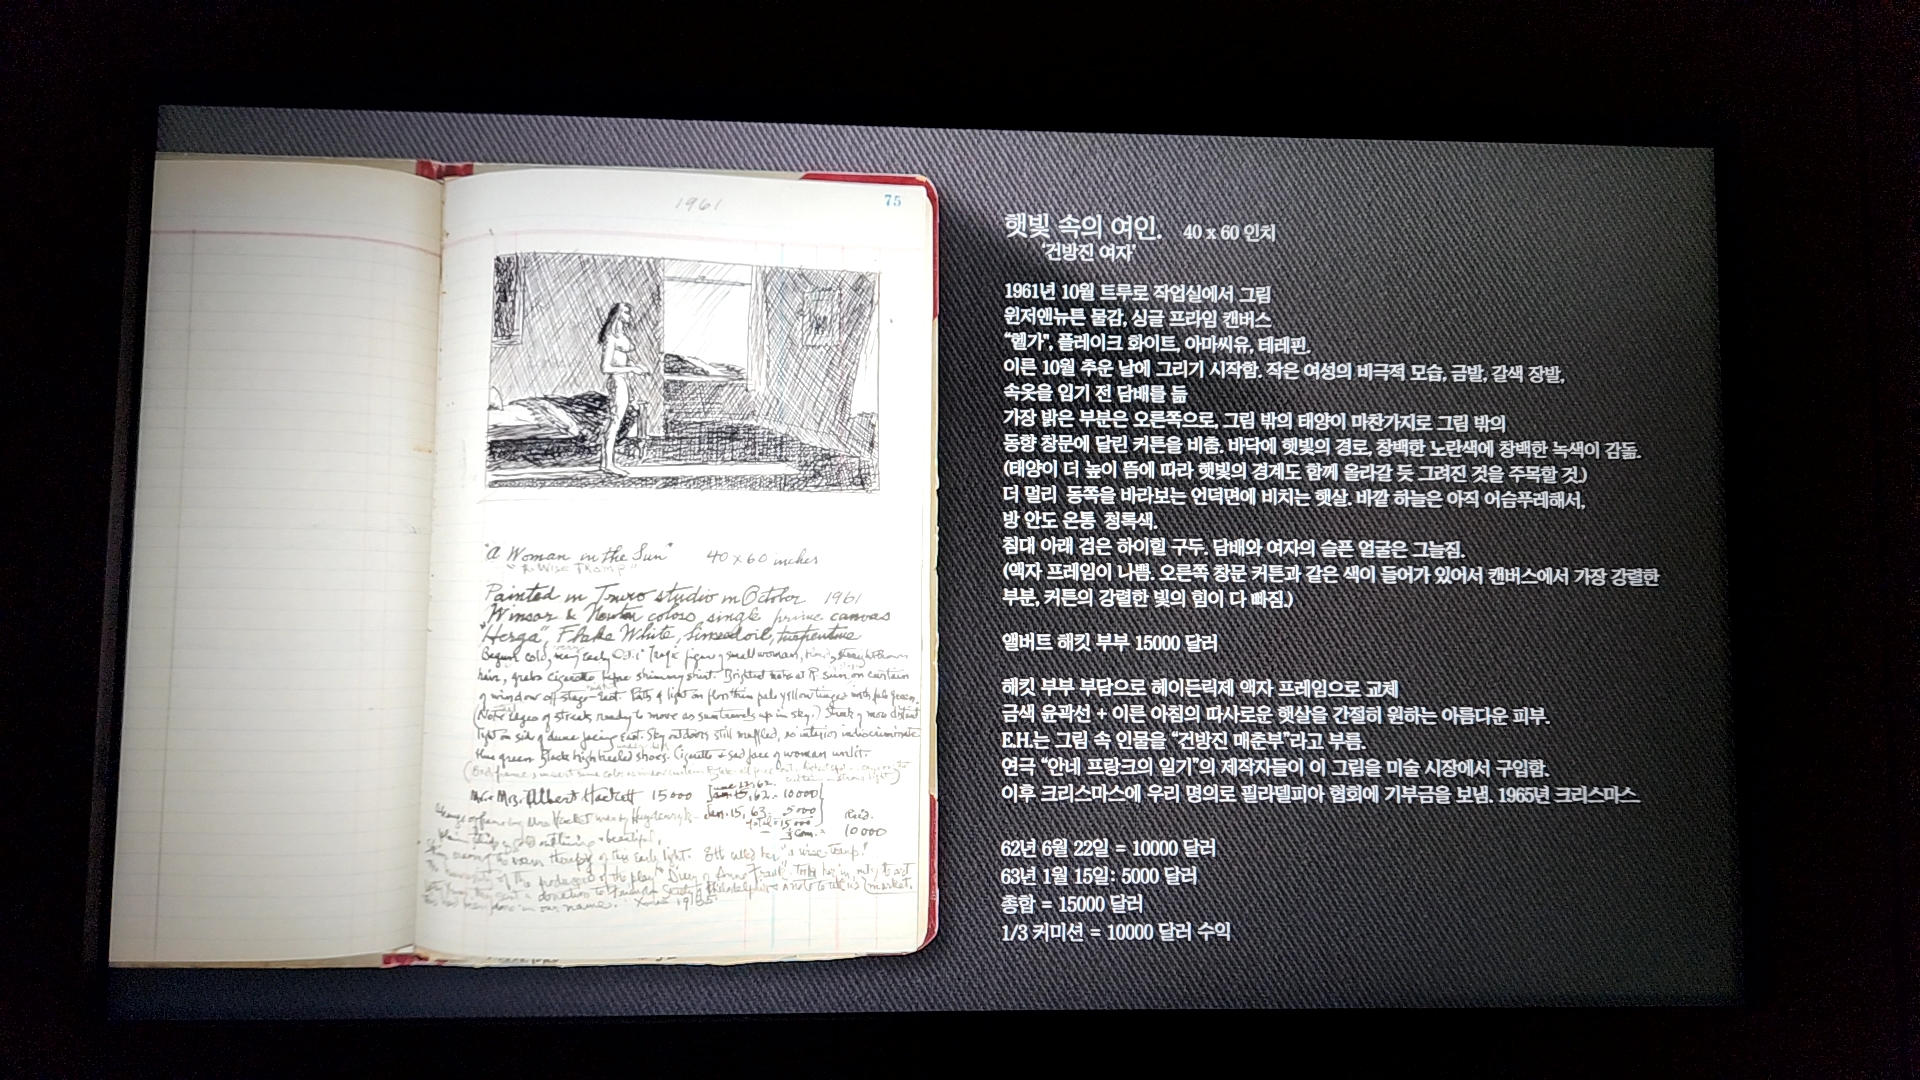 1961
75
"A Woman in the Sun" 40 x 60 inches
"A Wise Tramp"
Painted in Truro studio in October 1961
Winsor & Newton colors, single prime canvas
"Herga", Flake White, linseed oil, turpentine
Begun cold, very early Oct. Tragic figure of small woman,
hair, grabs cigarette before shimmy shirt. Brightest note at R. sun on curtain
of window off stage - East. Path of light on floor thin pale yellow tinged with pale green.
(Note edges of streak ready to move as sun travels up in sky.) Streak of more distant
light on side of dune facing East. Sky outdoors still muffled, so interior indiscriminate
blue green. Black high heeled shoes. Cigarette & sad face of woman unlit.
Mr. & Mrs. Albert Hackett 15000
Jan. 15, 63. 5000
total = 15000
1/3 Com. = 10000
햇빛 속의 여인. 40 x 60 인치
‘건방진 여자’
1961년 10월 트루로 작업실에서 그림
윈저앤뉴튼 물감, 싱글 프라임 캔버스
“헬가”, 플레이크 화이트, 아마씨유, 테레핀.
이른 10월 추운 날에 그리기 시작함. 작은 여성의 비극적 모습, 금발, 갈색 장발,
속옷을 입기 전 담배를 듦
가장 밝은 부분은 오른쪽으로, 그림 밖의 태양이 마찬가지로 그림 밖의
동향 창문에 달린 커튼을 비춤. 바닥에 햇빛의 경로, 창백한 노란색에 창백한 녹색이 감돎.
(태양이 더 높이 뜸에 따라 햇빛의 경계도 함께 올라갈 듯 그려진 것을 주목할 것.)
더 멀리 동쪽을 바라보는 언덕면에 비치는 햇살. 바깥 하늘은 아직 어슴푸레해서,
방 안도 온통 청록색.
침대 아래 검은 하이힐 구두. 담배와 여자의 슬픈 얼굴은 그늘짐.
(액자 프레임이 나쁨. 오른쪽 창문 커튼과 같은 색이 들어가 있어서 캔버스에서 가장 강렬한
부분, 커튼의 강렬한 빛의 힘이 다 빠짐.)
앨버트 해킷 부부 15000 달러
해킷 부부 부담으로 헤이든릭제 액자 프레임으로 교체
금색 윤곽선 + 이른 아침의 따사로운 햇살을 간절히 원하는 아름다운 피부.
E.H.는 그림 속 인물을 “건방진 매춘부”라고 부름.
연극 “안네 프랑크의 일기”의 제작자들이 이 그림을 미술 시장에서 구입함.
이후 크리스마스에 우리 명의로 필라델피아 협회에 기부금을 보냄. 1965년 크리스마스
62년 6월 22일 = 10000 달러
63년 1월 15일: 5000 달러
총합 = 15000 달러
1/3 커미션 = 10000 달러 수익